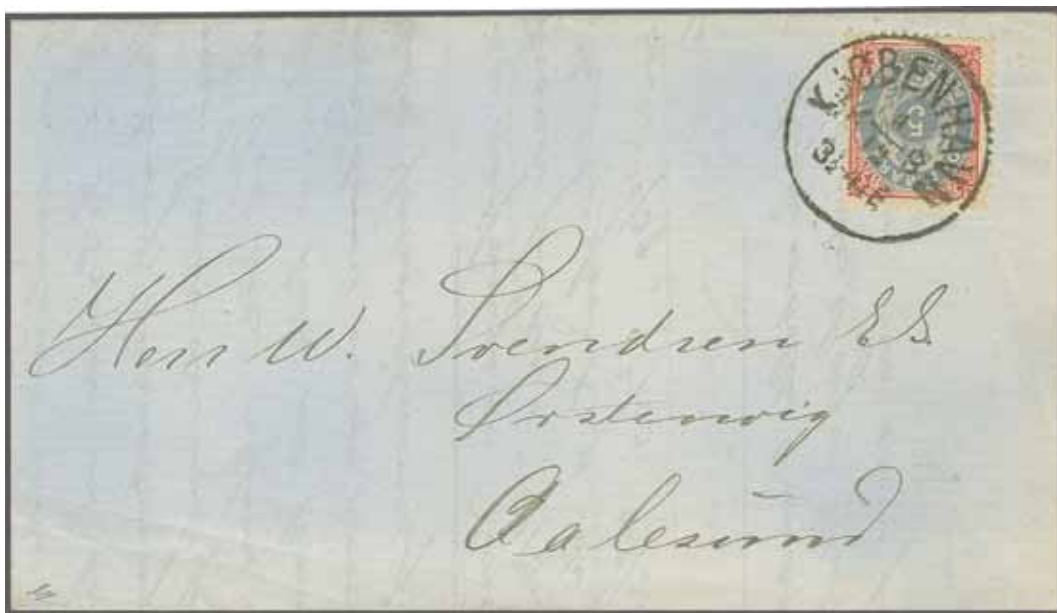 KJØBENHAVN
Herr W. Svendsen
Ørstenvig
Aalesund